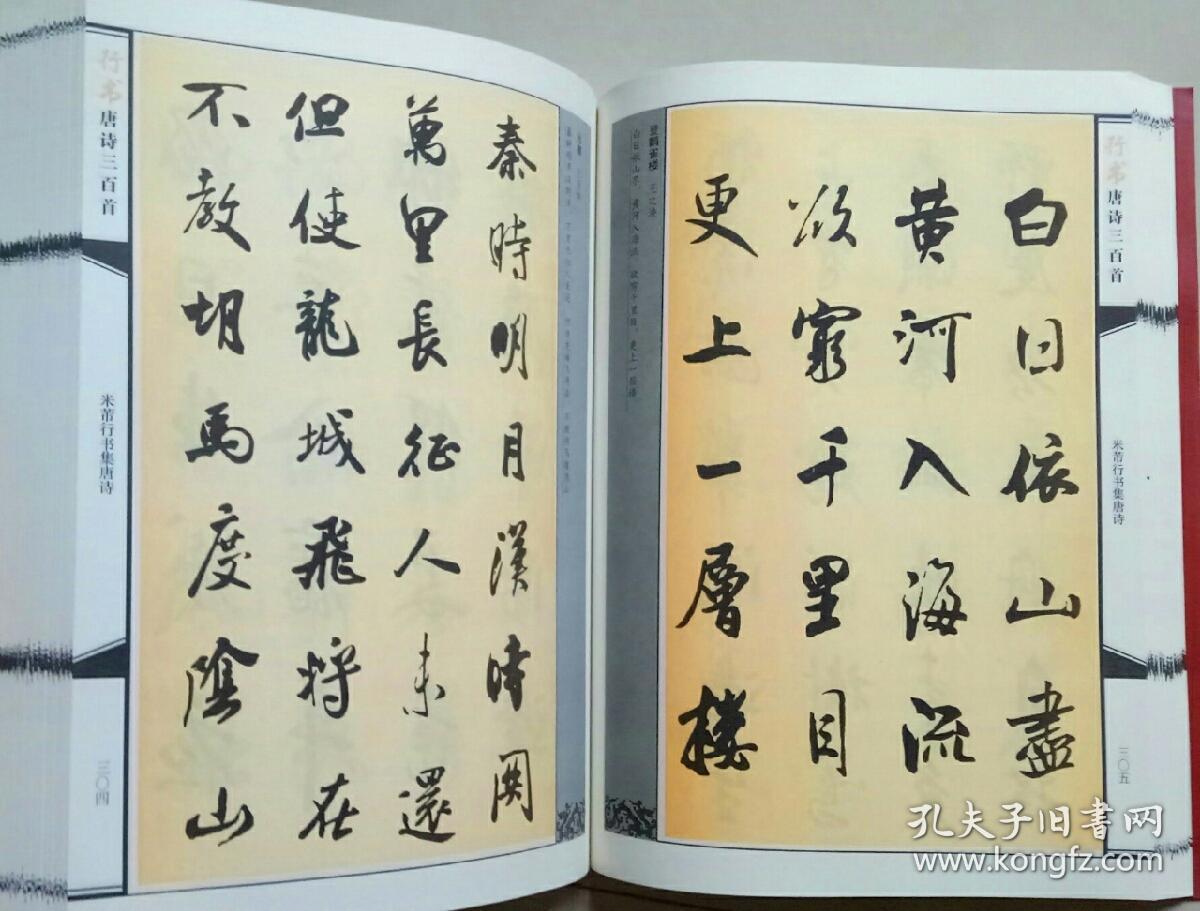 行书
唐诗三百首
米芾行书集唐诗
三〇五
白日依山盡
黄河入海流
欲窮千里目
更上一層樓
登鹳雀楼 王之涣
白日依山尽，黄河入海流。欲穷千里目，更上一层楼。
行书
唐诗三百首
米芾行书集唐诗
三〇四
秦時明月漢時関
萬里長征人未還
但使龍城飛将在
不教胡馬度陰山
孔夫子旧书网
www.kongfz.com